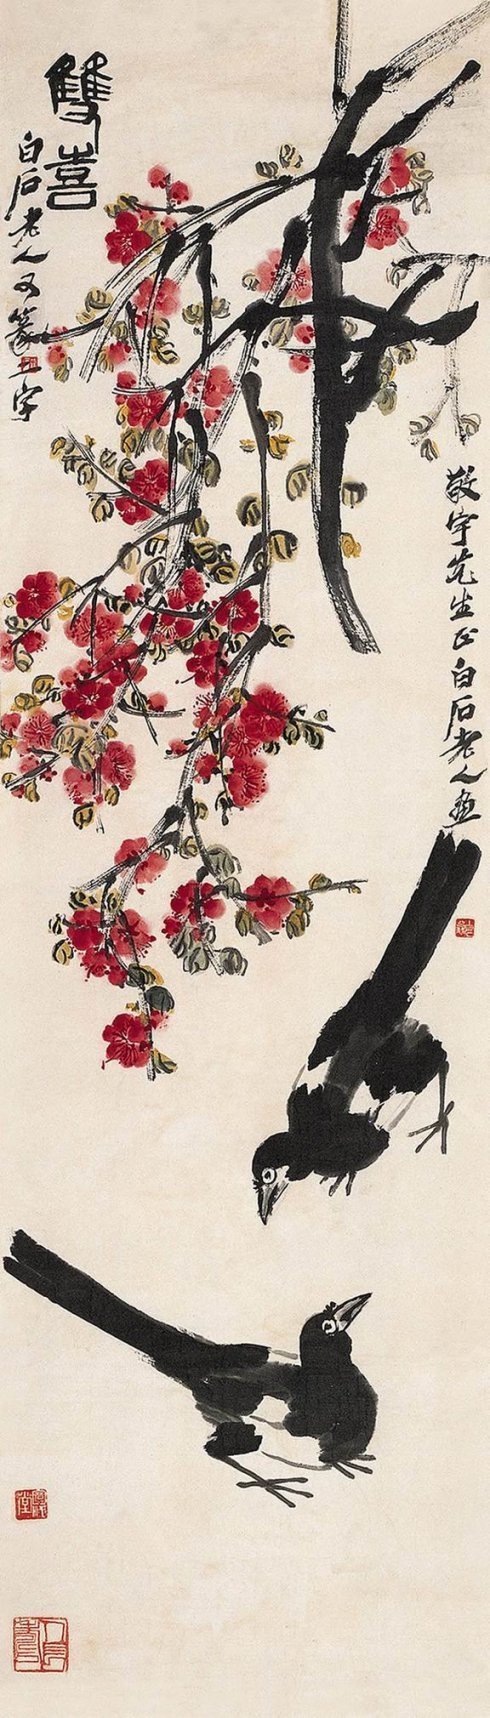 雙喜
白石老人又篆二字
敬宇先生正白石老人畫